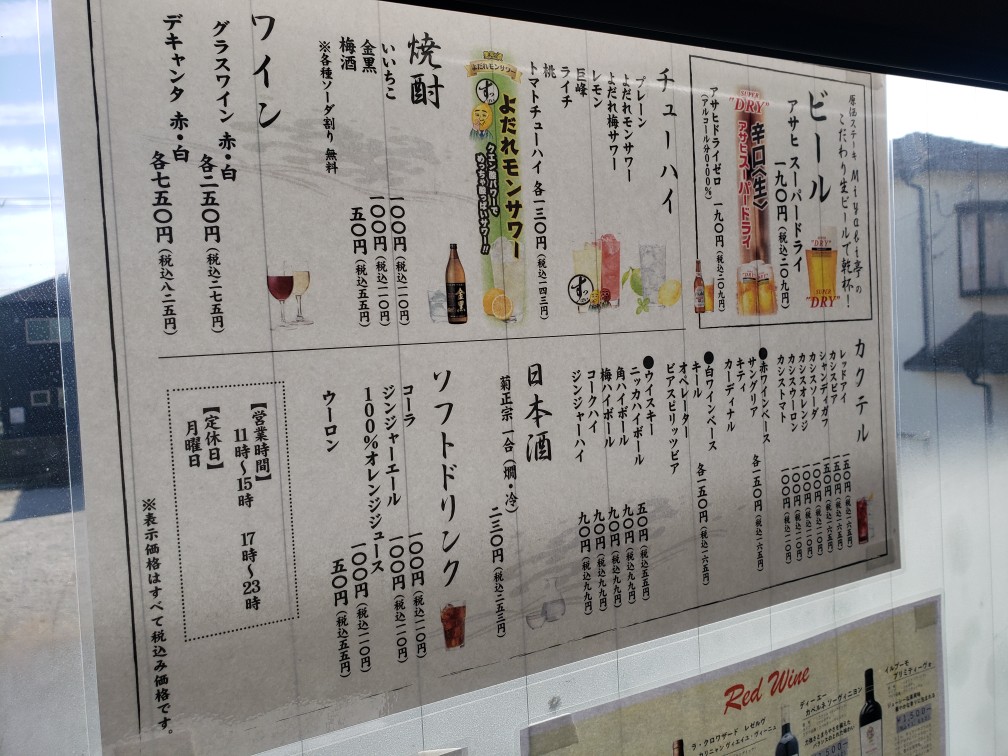 原価ステーキMiyabi亭の
こだわり生ビールで乾杯!
ビール
アサヒ スーパードライ
一九〇円(税込二〇九円)
SUPER "DRY"
辛口〈生〉
アサヒスーパードライ
アサヒドライゼロ 一九〇円(税込二〇九円)
(アルコール分0.00%)
チューハイ
プレーン
よだれモンサワー
よだれ梅サワー
レモン
巨峰
ライチ
桃
トマトチューハイ 各一三〇円(税込一四三円)
よだれモンサワー
す
よだれモンサワー
クエン酸パワーで
めっちゃ酸っぱいサワー!!
焼酎
いいちこ 一〇〇円(税込一一〇円)
金黒 一〇〇円(税込一一〇円)
梅酒 五〇円(税込五五円)
※各種ソーダ割り無料
金黒
ワイン
グラスワイン 赤・白 各二五〇円(税込二七五円)
デキャンタ 赤・白 各七五〇円(税込八二五円)
カクテル
レッドアイ 一五〇円(税込一六五円)
カシスビア 一五〇円(税込一六五円)
シャンディガフ 一五〇円(税込一六五円)
カシスソーダ 一〇〇円(税込一一〇円)
カシスオレンジ 一〇〇円(税込一一〇円)
カシスウーロン 一〇〇円(税込一一〇円)
カシストマト 一〇〇円(税込一一〇円)
●赤ワインベース
サングリア 各一五〇円(税込一六五円)
キティ
カーディナル
●白ワインベース
キール 各一五〇円(税込一六五円)
オペレーター
ビアスピリッツビア
●ウイスキー 五〇円(税込五五円)
ニッカハイボール 九〇円(税込九九円)
角ハイボール 九〇円(税込九九円)
梅ハイボール 九〇円(税込九九円)
コークハイ 九〇円(税込九九円)
ジンジャーハイ
日本酒
菊正宗一合(燗・冷) 二三〇円(税込二五三円)
ソフトドリンク
コーラ 一〇〇円(税込一一〇円)
ジンジャーエール 一〇〇円(税込一一〇円)
100%オレンジジュース 一〇〇円(税込一一〇円)
ウーロン 五〇円(税込五五円)
【営業時間】
11時〜15時 17時〜23時
【定休日】
月曜日
※表示価格はすべて税込み価格です。
Red Wine
イルプーモ
プリミティーヴォ
ディーエー
カベルネ ソーヴィニヨン
ラ・クロワザード レゼルヴ
カリニャン ヴィエイユ・ヴィーニュ